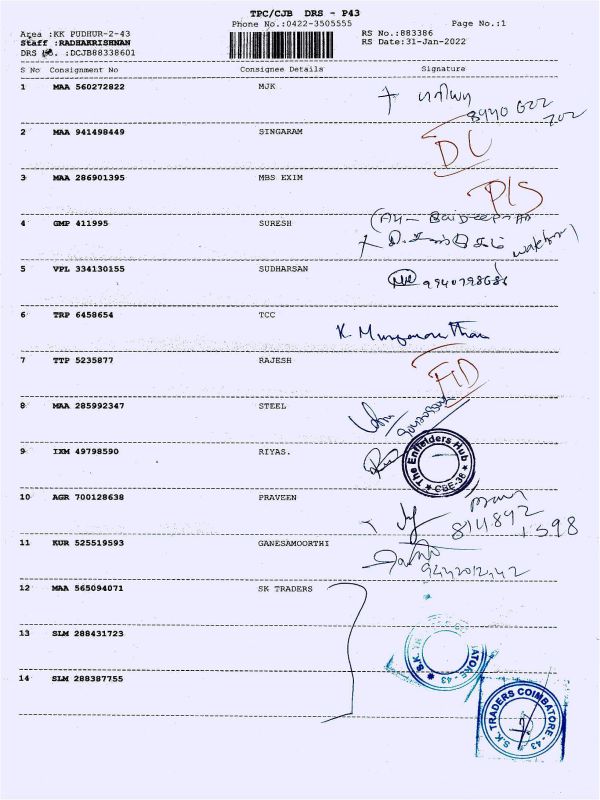 TPC/CJB DRS - P43
Phone No.:0422-3505555
Page No.:1
Area :KK PUDHUR-2-43
RS No.:883386
Staff :RADHAKRISHNAN
RS Date:31-Jan-2022
DRS No. :DCJB88338601
S No Consignment No Consignee Details Signature
1 MAA 560272822 MJK
2 MAA 941498449 SINGARAM
DL
3 MAA 286901395 MBS EXIM
4 GMP 411995 SURESH
5 VPL 334130155 SUDHARSAN
6 TRP 6458654 TCC
7 TTP 5235877 RAJESH
8 MAA 285992347 STEEL
9 IXM 49798590 RIYAS.
The Enfielders Hub
CBE-38
10 AGR 700128638 PRAVEEN
11 KUR 525519593 GANESAMOORTHI
12 MAA 565094071 SK TRADERS
13 SLM 288431723
14 SLM 288387755
S.K. TRADERS COIMBATORE - 43